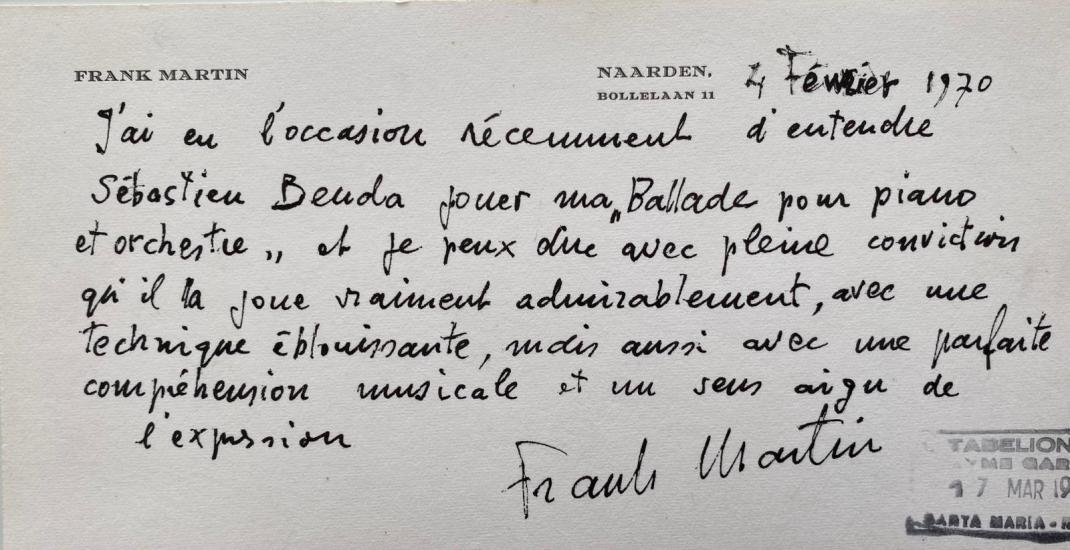 FRANK MARTIN
NAARDEN,
BOLLELAAN 11
4 Février 1970
J'ai eu l'occasion récemment d'entendre
Sébastien Benda jouer ma „Ballade pour piano
et orchestre„ et je peux dire avec pleine conviction
qu'il la joue vraiment admirablement, avec une
technique éblouissante, mais aussi avec une parfaite
compréhension musicale et un sens aigu de
l'expression
Frank Martin
TABELION
17 MAR 19
SANTA MARIA - R